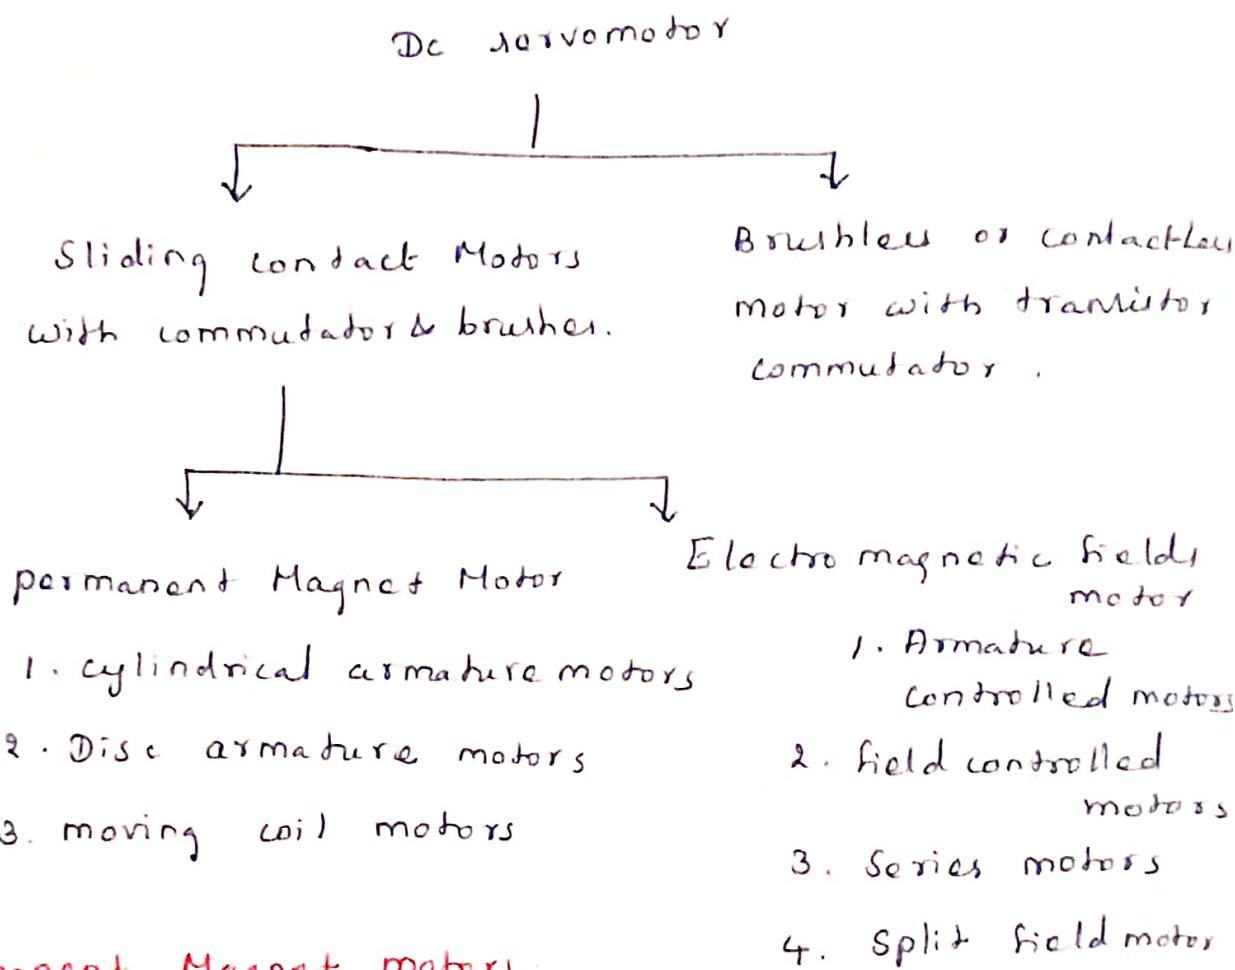 Dc servomotor
Sliding contact Motors
with commutator & brushes.
Brushless or contactless
motor with transistor
commutator.
permanent Magnet Motor
1. cylindrical armature motors
2. Disc armature motors
3. moving coil motors
Electro magnetic fields
motor
1. Armature
controlled motors
2. field controlled
motors
3. Series motors
4. Split field motor
Magnet motors